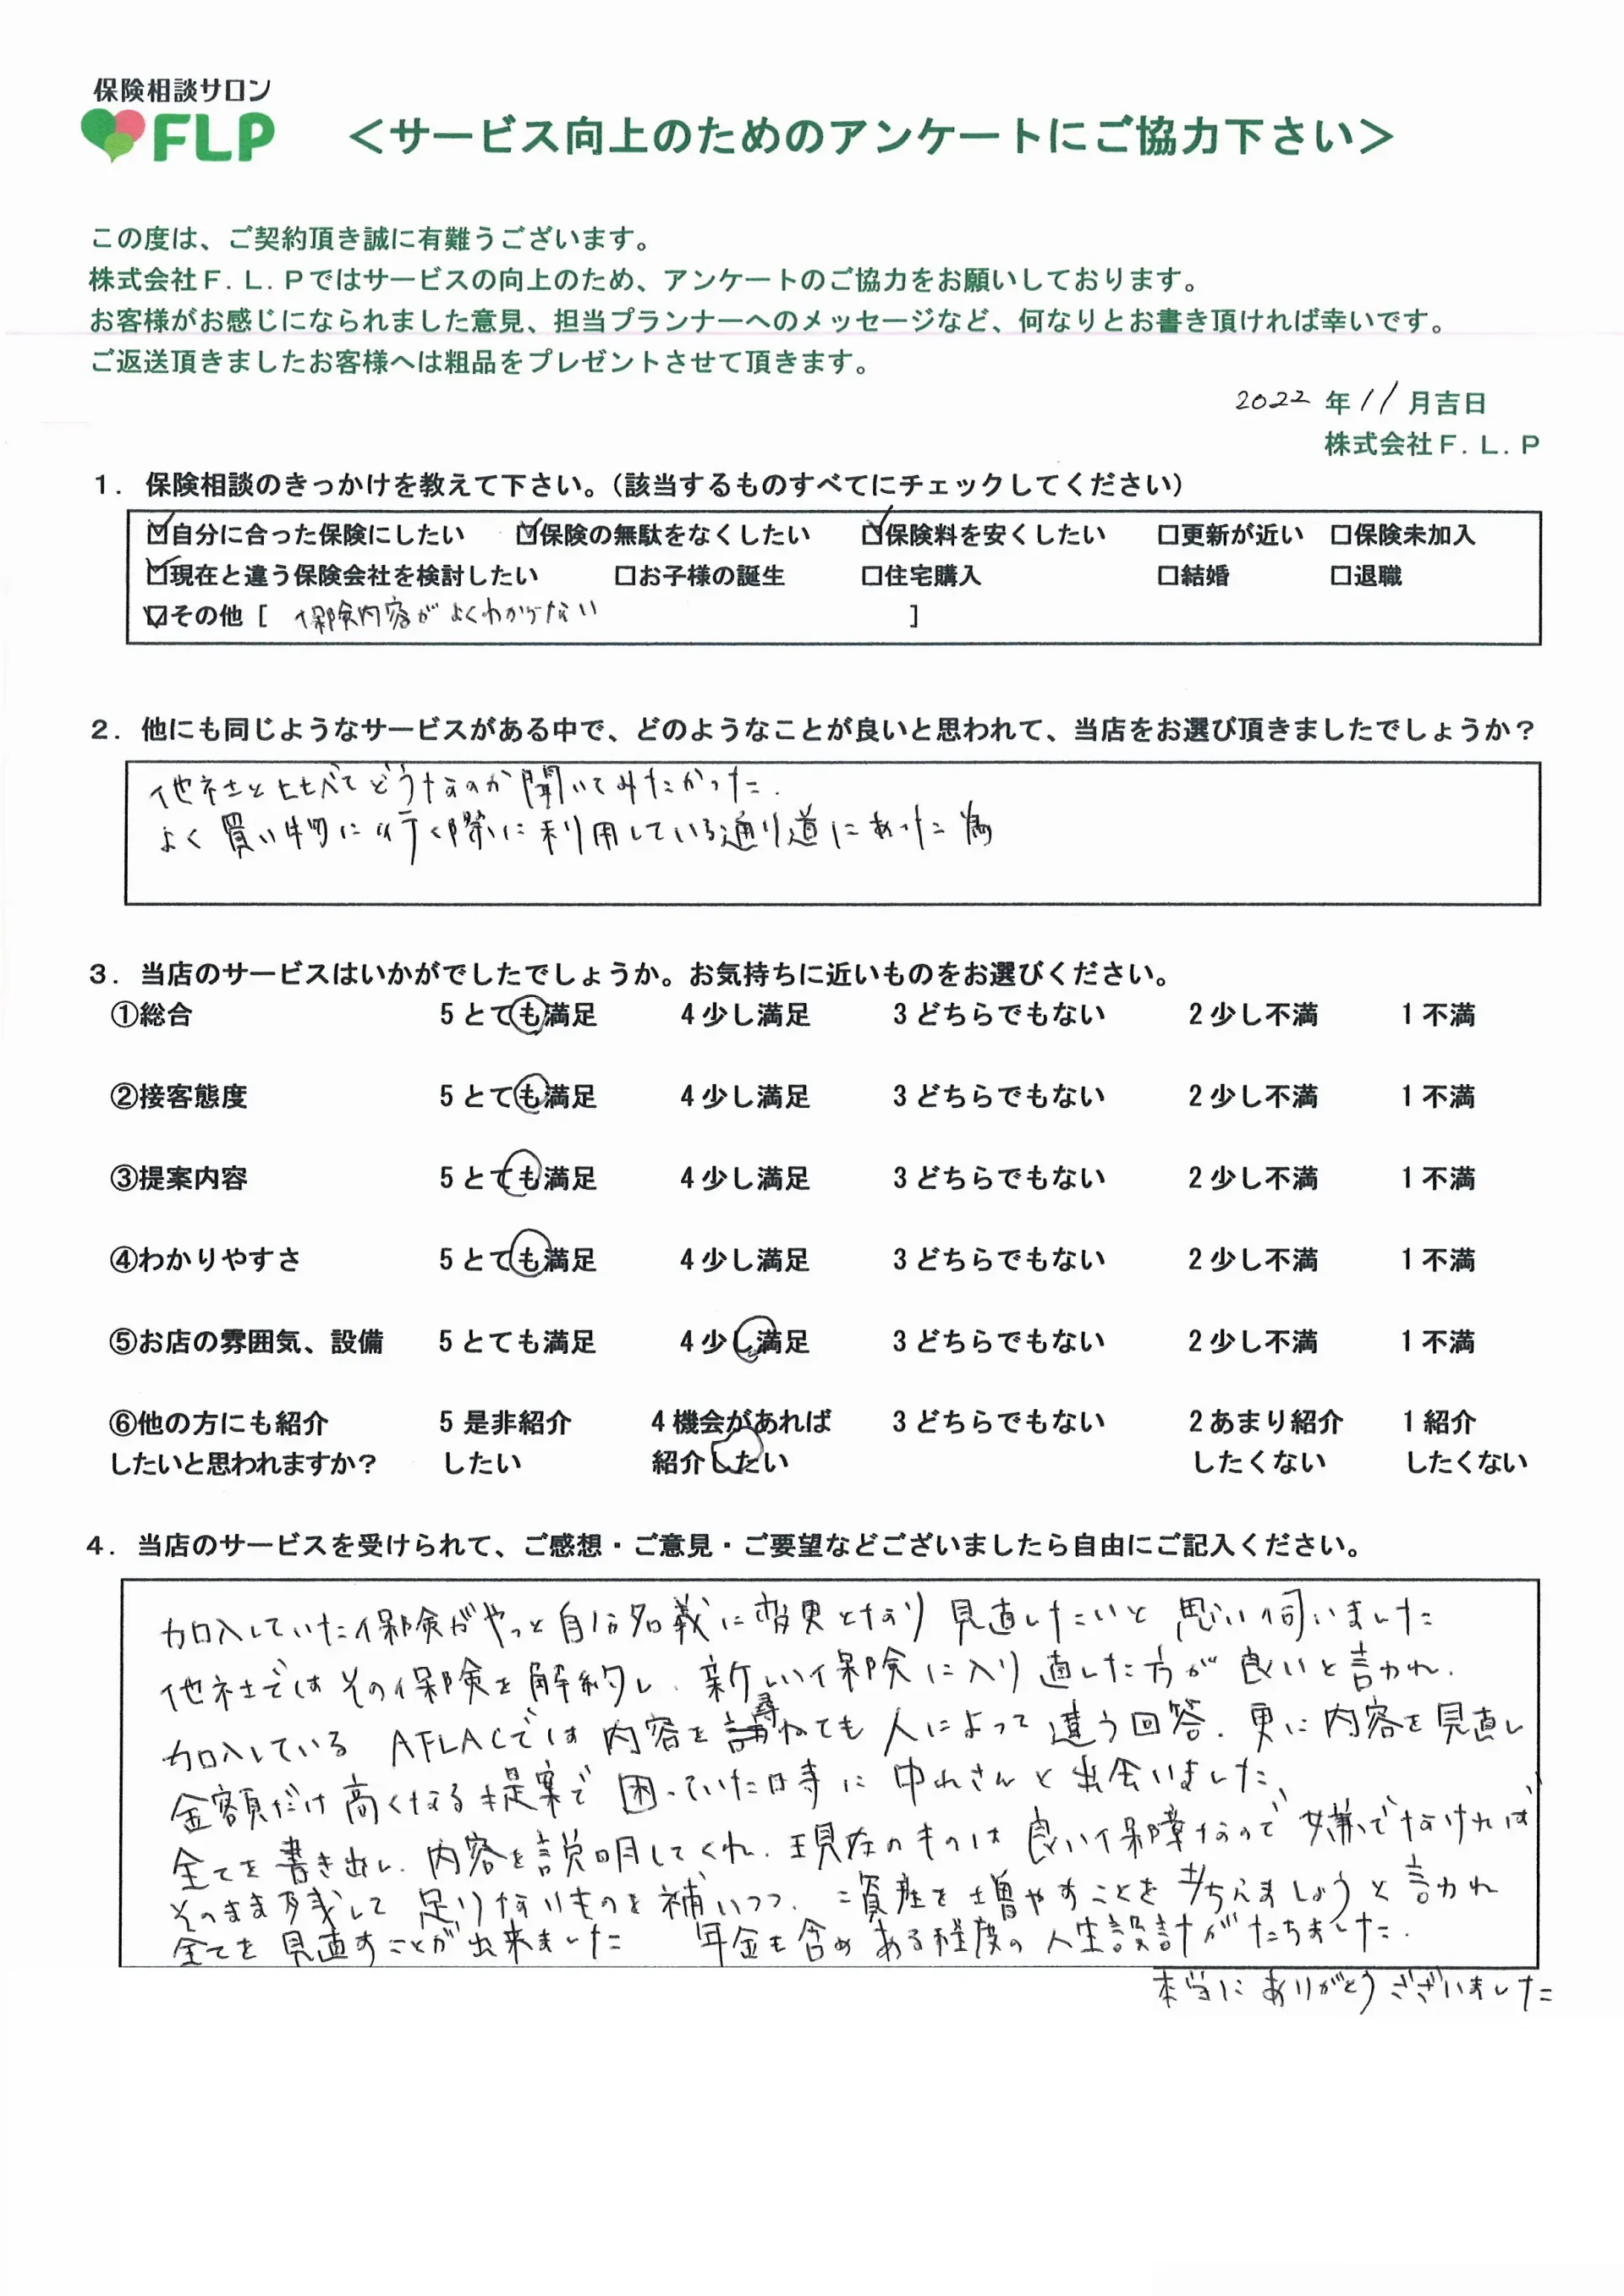 保険相談サロン
FLP
＜サービス向上のためのアンケートにご協力下さい＞
この度は、ご契約頂き誠に有難うございます。
株式会社Ｆ.Ｌ.Ｐではサービスの向上のため、アンケートのご協力をお願いしております。
お客様がお感じになられました意見、担当プランナーへのメッセージなど、何なりとお書き頂ければ幸いです。
ご返送頂きましたお客様へは粗品をプレゼントさせて頂きます。
2022 年 11 月吉日
株式会社Ｆ.Ｌ.Ｐ
１．保険相談のきっかけを教えて下さい。（該当するものすべてにチェックしてください）
☑自分に合った保険にしたい ☑保険の無駄をなくしたい ☑保険料を安くしたい □更新が近い □保険未加入
☑現在と違う保険会社を検討したい □お子様の誕生 □住宅購入 □結婚 □退職
☑その他 [ 保険内容がよくわからない ]
２．他にも同じようなサービスがある中で、どのようなことが良いと思われて、当店をお選び頂きましたでしょうか？
他社と比べてどうなのか聞いてみたかった.
よく買い物に行く際に利用している通り道にあった為
３．当店のサービスはいかがでしたでしょうか。お気持ちに近いものをお選びください。
①総合 5 とても満足 4 少し満足 3 どちらでもない 2 少し不満 1 不満
②接客態度 5 とても満足 4 少し満足 3 どちらでもない 2 少し不満 1 不満
③提案内容 5 とても満足 4 少し満足 3 どちらでもない 2 少し不満 1 不満
④わかりやすさ 5 とても満足 4 少し満足 3 どちらでもない 2 少し不満 1 不満
⑤お店の雰囲気、設備 5 とても満足 4 少し満足 3 どちらでもない 2 少し不満 1 不満
⑥他の方にも紹介 5 是非紹介 4 機会があれば 3 どちらでもない 2 あまり紹介 1 紹介
したいと思われますか？ したい 紹介したい したくない したくない
４．当店のサービスを受けられて、ご感想・ご意見・ご要望などございましたら自由にご記入ください。
加入していた保険がやっと自分名義に変更となり 見直したいと思い伺いました
他社ではその保険を解約し、新しい保険に入り直した方が良いと言われ.
加入している AFLACでは内容を尋ねても人によって違う回答. 更に内容を見直し
金額だけ高くなる提案で困っていた時に 中れさんと出会いました、
全てを書き出し、内容を説明してくれ、現在のものは良い保障なので嫌でなければ
そのまま残して足りないものを補いつつ、資産を増やすことを考えましょうと言われ
全てを見直すことが出来ました 年金も含めある程度の人生設計がたちました.
本当にありがとうございました